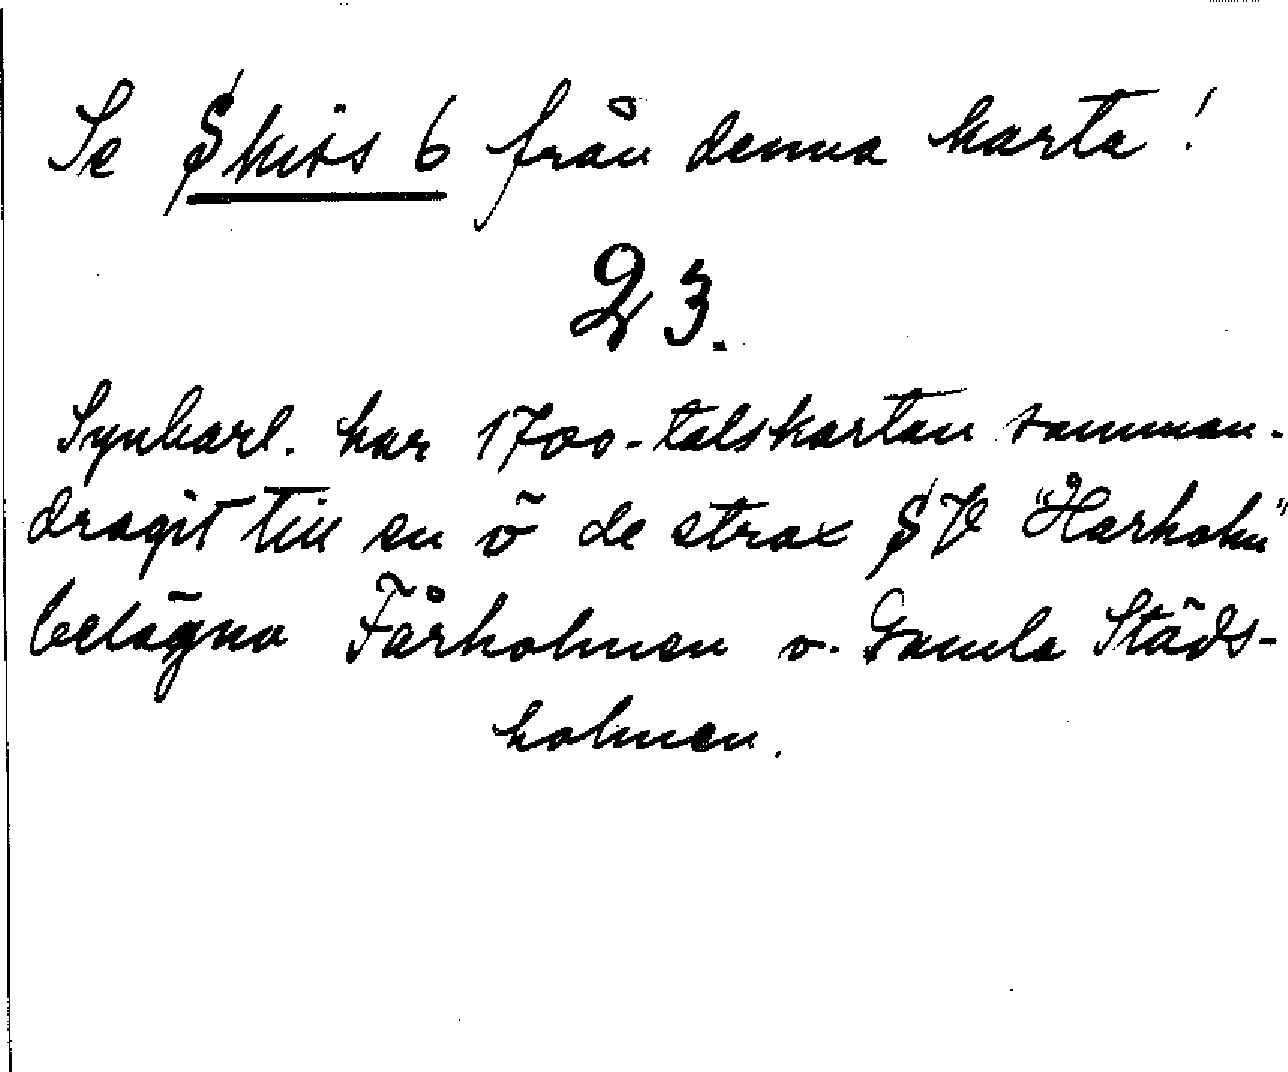 Se Skiss 6 från denna karta!
23.
Synbarl. har 1700-talskartan samman-
dragit till en ö de strax SV "Harholm"
belägna Fårholmen o. Gamla Städs-
holmen.